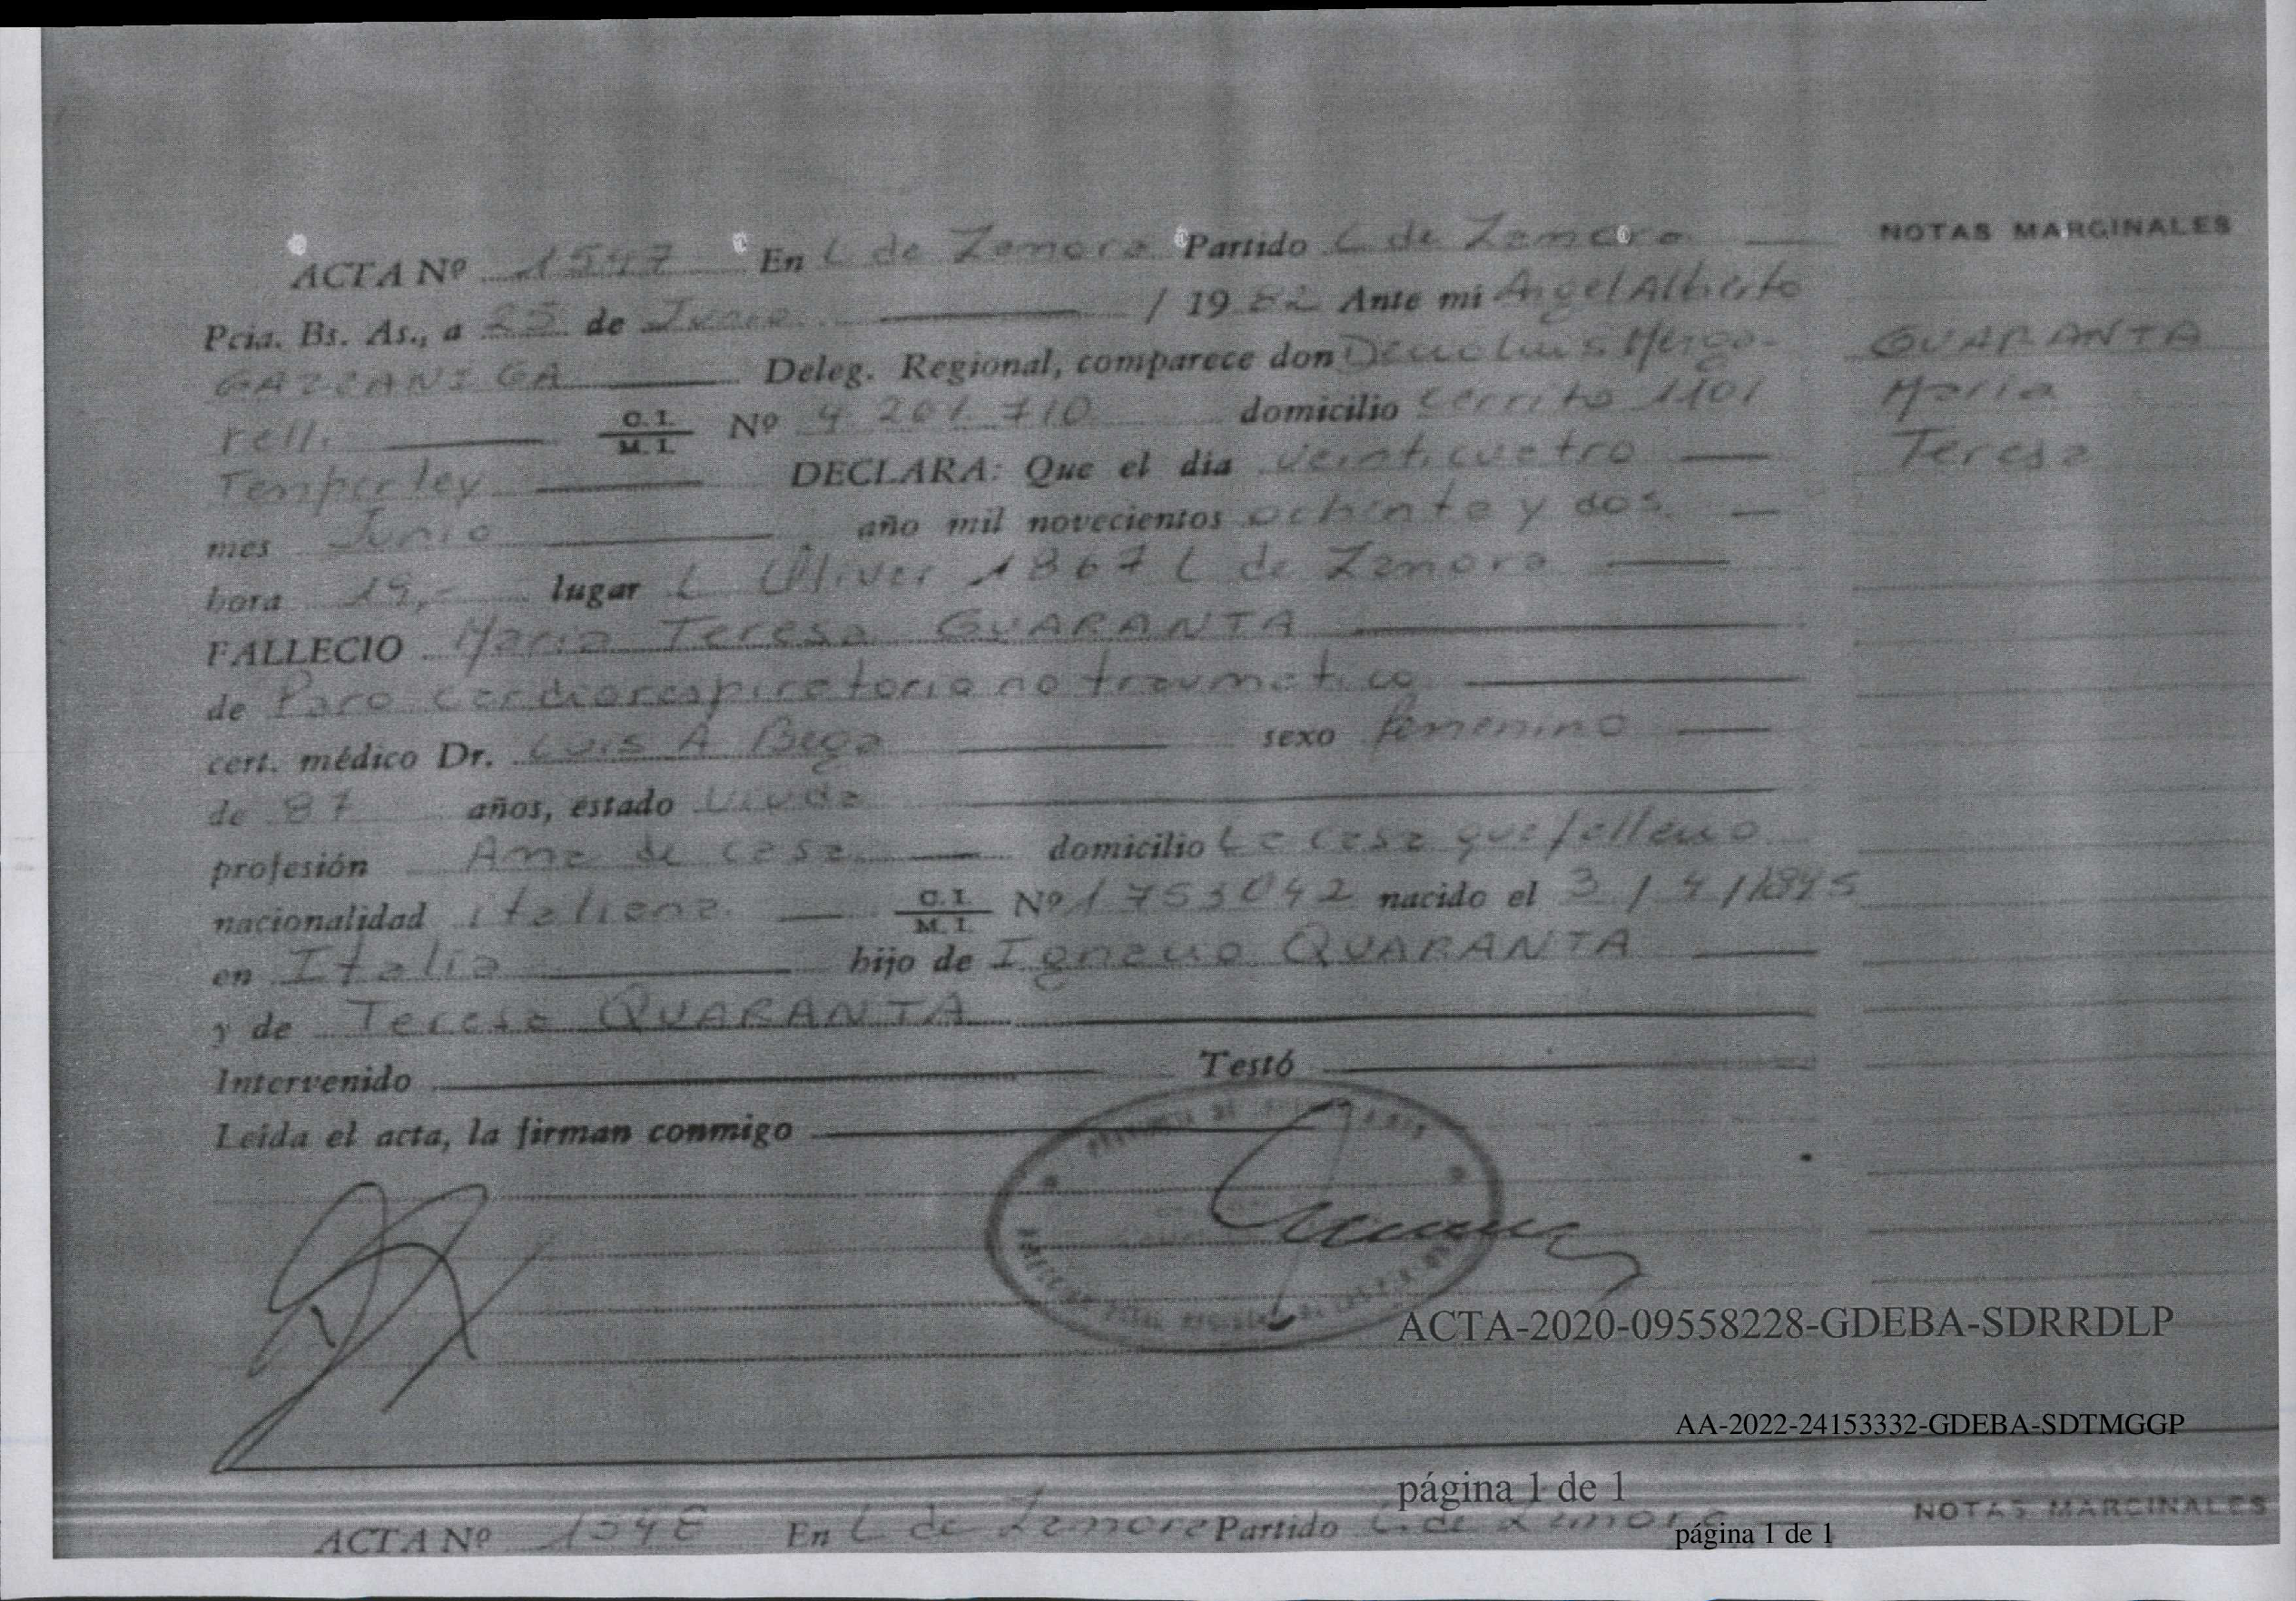 ACTA Nº 1547 En L de Zamora Partido L de Zamora NOTAS MARGINALES
Pcia. Bs. As., a 25 de Junio / 1982 Ante mi Angel Alberto
GAZZANIGA Deleg. Regional, comparece don Luis Mergo- GUARANTA
relli C. I. M. I. Nº 4 201 710 domicilio Cerrito 1101 Maria
Temperley DECLARA: Que el dia veinticuatro Teresa
mes Junio año mil novecientos ochenta y dos
hora 19,- lugar L Oliver 1867 L de Zamora
FALLECIO Maria Teresa GUARANTA
de Paro cardiorespiratorio no traumatico
cert. médico Dr. Luis A Bega sexo femenino
de 87 años, estado Viuda
profesión Ama de casa domicilio La casa que fallecio
nacionalidad italiana C. I. M. I. Nº 1753042 nacido el 3 / 4 / 1895
en Italia hijo de Ignacio QUARANTA
y de Teresa QUARANTA
Intervenido Testó
Leída el acta, la firman conmigo
ACTA-2020-09558228-GDEBA-SDRRDLP
AA-2022-24153332-GDEBA-SDTMGGP
página 1 de 1
ACTA Nº 1548 En L de Zamora Partido L. de Zamora NOTAS MARGINALES
página 1 de 1